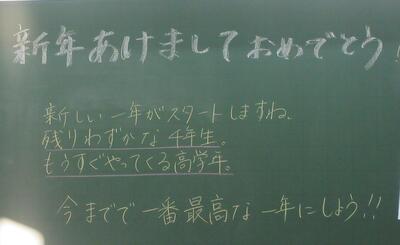 新年あけましておめでとう!
新しい一年がスタートしますね。
残りわずかな4年生。
もうすぐやってくる高学年。
今までで一番最高な一年にしよう!!